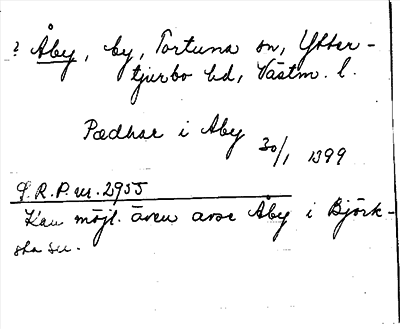 ? Åby, by, Tortuna sn, Ytter-
tjurbo hd, Västm. l.
Pædhar i Aby 30/1 1399
S.R.P. nr. 2955
Kan möjl. även avse Åby i Björk-
sta sn.